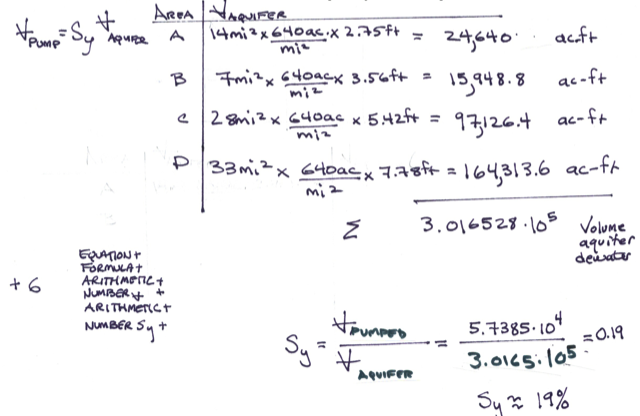 AREA V AQUIFER
V PUMP = Sy V AQUIFER
A 14mi² x 640ac/mi² x 2.75ft = 24,640 ac-ft
B 7mi² x 640ac/mi² x 3.56ft = 15,948.8 ac-ft
C 28mi² x 640ac/mi² x 5.42ft = 97,126.4 ac-ft
D 33mi² x 640ac/mi² x 7.78ft = 164,313.6 ac-ft
Σ 3.016528·10⁵ Volume aquifer dewater
+6
EQUATION+
FORMULA+
ARITHMETIC+
NUMBER V +
ARITHMETIC+
NUMBER Sy +
Sy = V PUMPED / V AQUIFER = 5.7385·10⁴ / 3.0165·10⁵ = 0.19
Sy ≈ 19%